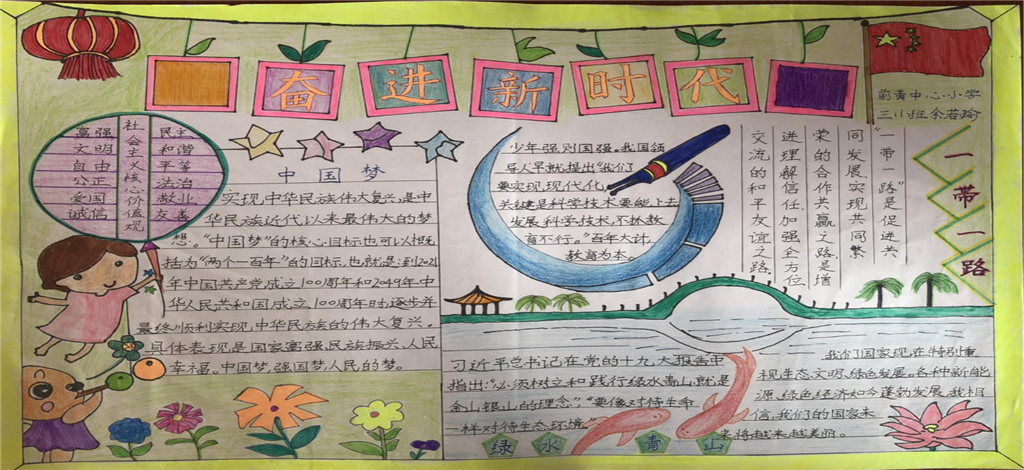 奋进新时代
前黄中心小学
三(1)班余若瑜
富强
文明
自由
公正
爱国
诚信
社会主义核心价值观
民主
和谐
平等
法治
敬业
友善
中国梦
实现中华民族伟大复兴,是中
华民族近代以来最伟大的梦
想。“中国梦”的核心目标也可以概
括为“两个一百年”的目标,也就是:到2021
年中国共产党成立100周年和2049年中
华人民共和国成立100周年时,逐步并
最终顺利实现中华民族的伟大复兴。
具体表现是国家富强,民族振兴,人民
幸福。中国梦,强国梦,人民的梦。
少年强则国强。我国领
导人早就提出“我们
要实现现代化,
关键是科学技术要能上去
发展科学技术,不抓教
育不行。”百年大计,
教育为本。
“一带一路”是促进共
同发展、实现共同繁
荣的合作共赢之路,是增
进理解信任、加强全方位
交流的和平友谊之路。
一带一路
习近平总书记在党的十九大报告中
指出:“必须树立和践行绿水青山就是
金山银山的理念”,“要像对待生命
一样对待生态环境。”
我们国家现在特别重
视生态文明,绿色发展。各种新能
源、绿色经济如今蓬勃发展,我相
信,我们的国家未
来将越来越美丽。
绿水青山